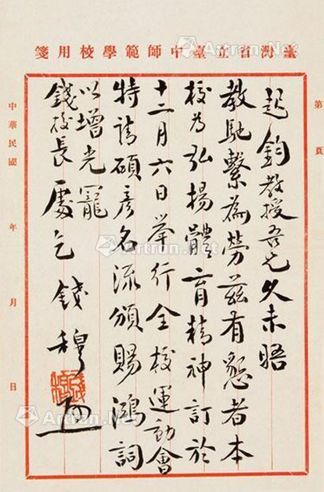 臺灣省立臺中師範學校用箋
第 頁
起鈞教授吾兄久未晤
教馳繫為勞茲有懇者本
校為弘揚體育精神訂於
十二月六日舉行全校運動會
特請碩彥名流頒賜鴻詞
以增光寵
錢校長處乞 錢穆
中華民國 年 月 日
Artron.Net